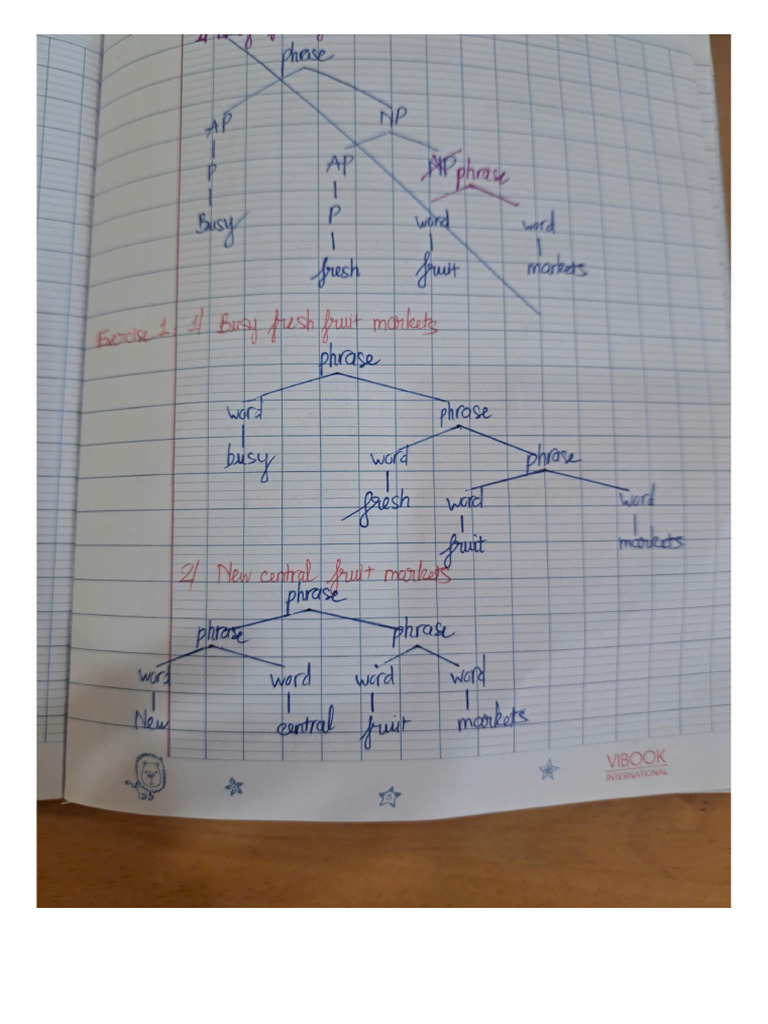 phrase
AP NP
P AP NP phrase
Busy P word word
fresh fruit markets
Exercise 1 1/ Busy fresh fruit markets
phrase
word phrase
busy word phrase
fresh word word
fruit markets
2/ New central fruit markets
phrase
phrase phrase
word word word word
New central fruit markets
VIBOOK
INTERNATIONAL